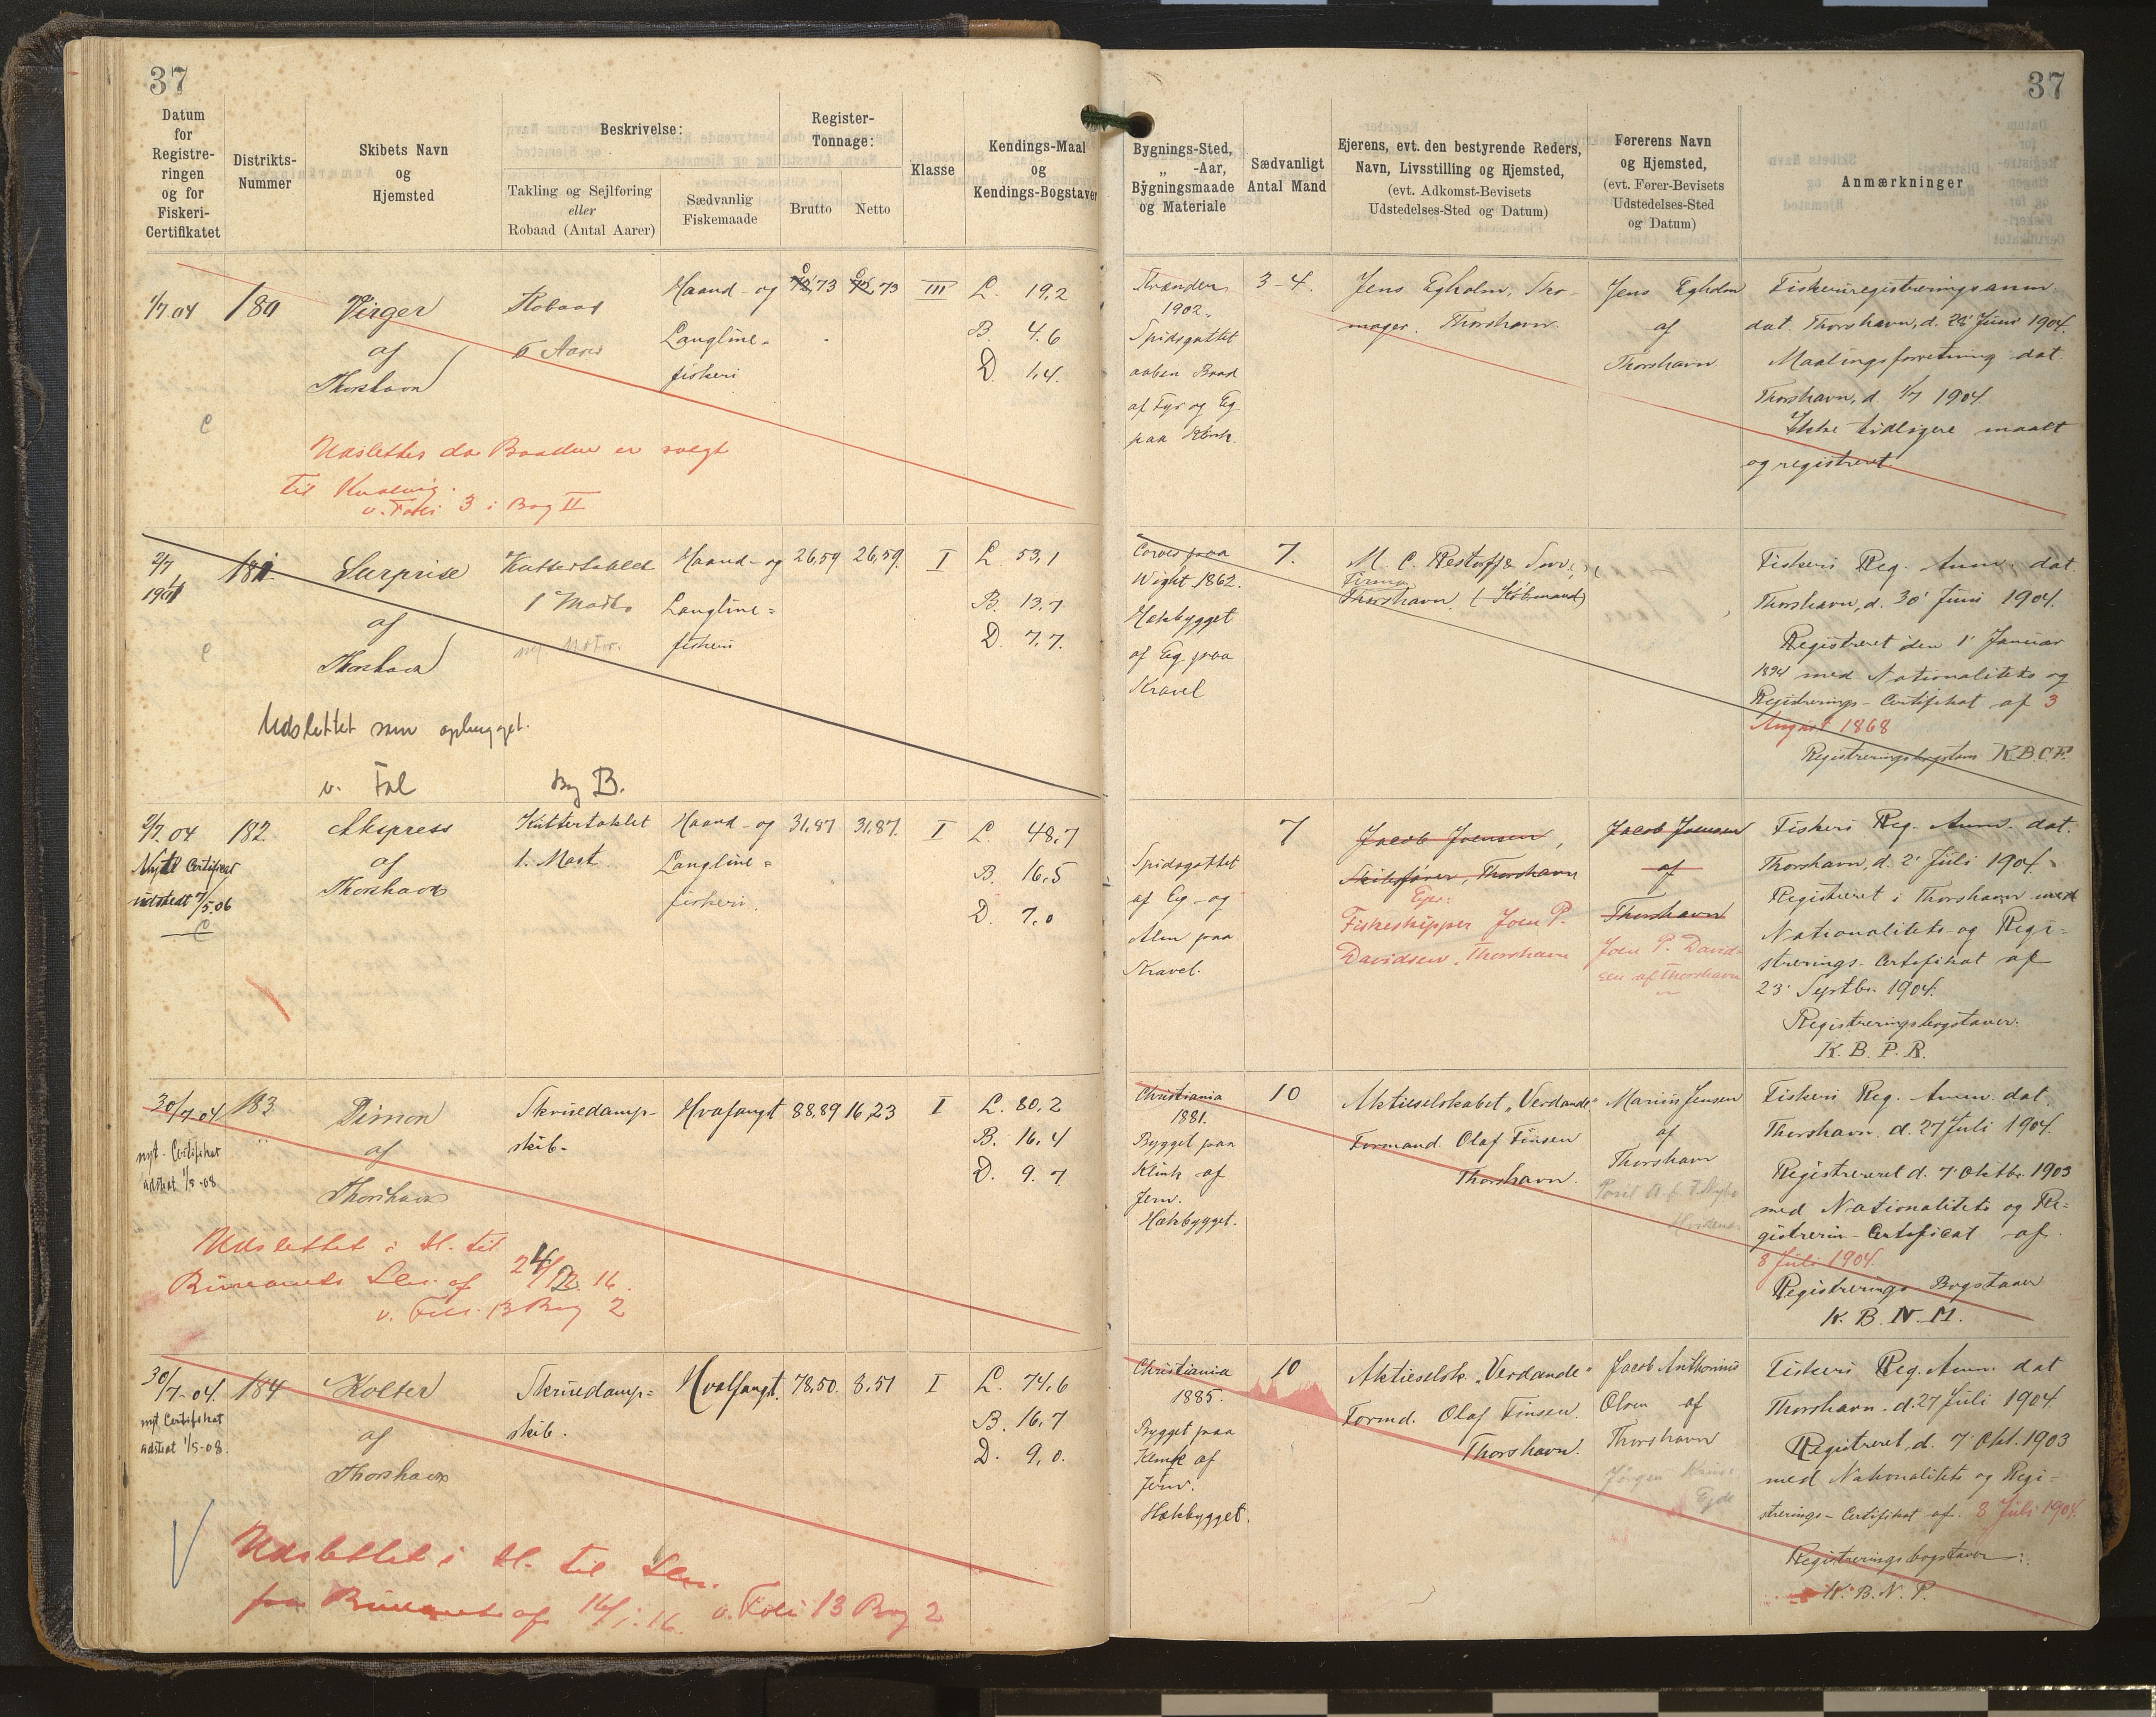 37
37
Datum
for
Registre-
ringen
og for
Fiskeri-
Certifikatet
Distrikts-
Nummer
Skibets Navn
og
Hjemsted
Beskrivelse:
Takling og Sejlføring
eller
Robaad (Antal Aarer)
Sædvanlig
Fiskemaade
Register-
Tonnage:
Brutto
Netto
Klasse
Kendings-Maal
og
Kendings-Bogstaver
Bygnings-Sted,
„ -Aar,
Bygningsmaade
og Materiale
Sædvanligt
Antal Mand
Ejerens, evt. den bestyrende Reders,
Navn, Livsstilling og Hjemsted,
(evt. Adkomst-Bevisets
Udstedelses-Sted og Datum)
Førerens Navn
og Hjemsted,
(evt. Fører-Bevisets
Udstedelses-Sted
og Datum)
Anmærkninger
1/7.04
180
Virger
af
Thorshavn
Robaad
6 Aarer
Haand- og
Langline-
fiskeri
0,73
0,73
III
L. 19,2
B. 4,6
D. 1,4.
Stranden
1902.
Spidsgattet
aaben Baad
af Fyr og Eg
paa Klink.
3-4.
Jens Egholm, Sko-
mager. Thorshavn.
Jens Egholm
af
Thorshavn
Fiskeriregistreringsanm.
dat. Thorshavn, d. 28' Juni 1904.
Maalingsforretning dat.
Thorshavn, d. 1/7 1904.
Ikke tidligere maalt
og registreret.
C
Udslettes da Baaden er solgt
til Kvalvig.
v. Folio 3 i Bog II
2/7
1904
181
Surprise
af
Thorshavn
Kuttertaklet
1 Mast
Motor.
Haand- og
Langline=
fiskeri
26,59
26,59.
I
L. 53,1
B. 13,7
D. 7,7.
Cowes paa
Wight 1862.
Hækbygget
af Eg paa
Kravel
7.
M. C. Restorff & Sønner
Firma
Thorshavn. (Købmand)
Fiskeri Reg. Anm. dat.
Thorshavn, d. 30' Juni 1904.
Registreret den 1' Januar
1894 med Nationalitets og
Registrerings-Certifikat af 3
August 1868
Registreringsbogstaver K.B.C.F.
C
Udslettet som ophugget.
v. Fol
Bog B.
2/7.04
Nyt Certificat
udstedt 7/5.06
C
182
Ekspress
af
Thorshavn
Kuttertaklet
1. Mast.
Haand- og
Langline=
fiskeri.
31,87
31,87.
I
L. 48,7
B. 16,5
D. 7,0
Spidsgattet
af Eg- og
Alm paa
Kravel.
7
Jacob Joensen,
Skibsfører, Thorshavn
Ejer:
Fiskeskipper Joen P.
Davidsen, Thorshavn
Jacob Joensen
af
Thorshavn
Joen P. David-
sen af Thorshavn
Fiskeri Reg. Anm. dat.
Thorshavn, d. 2' Juli 1904.
Registreret i Thorshavn med
Nationalitets- og Regi=
strerings-Certifikat af
23' Septbr. 1904.
Registreringsbogstaver.
K. B. P. R.
30/7.04
nyt. Certifikat
udstedt 1/5-08
183
Dimon
af
Thorshavn
Skruedamp-
skib-
Hvafangst
88,89
16,23
I
L. 80,2
B. 16,4
D. 9.7
Christiania
1881.
Bygget paa
Klink af
Jern.
Hækbygget.
10
Aktieselskabet „Verdande"
Formand. Olaf Finsen
Thorshavn.
Marius Jensen
af
Thorshavn
Fiskeri Reg. Anm. dat.
Thorshavn. d. 27 Juli 1904.
Registreret d. 7' Oktbr. 1903
med Nationalitets og Re=
gistrerin-Certificat af.
8 Juli 1904.
Registrerings Bogstaver
K. B. N. M.
Udslettet i H. til
Bureauets Skr. af
v. Folio 13 Bog 2
30/7-04.
nyt Certifikat
udstedt 1/5-08.
184
Kolter
af
Thorshavn
Skruedamp=
skib.
Hvalfangst.
78,50.
8,51
I
L. 74,6
B. 16,7
D. 9,0.
Christiania
1885.
Bygget paa
Klink af
Jern.
Hækbygget.
10
Aktieselsk. „Verdande"
Formd. Olaf Finsen.
Thorshavn.
Jacob Anthonius
Olsen af
Thorshavn
Jørgen
Ejde
Fiskeri Reg. Anm. dat
Thorshavn. d. 27 Juli 1904.
Registreret, d. 7' Okt. 1903
med Nationalitets og Regi=
strerings-Certifikat af. 8 Juli 1904.
Registreringsbogstaver:
K. B. N. P.
Udslettet i H. til Skr.
fra Bureauet af 16/1.16. v. Folio 13 Bog 2